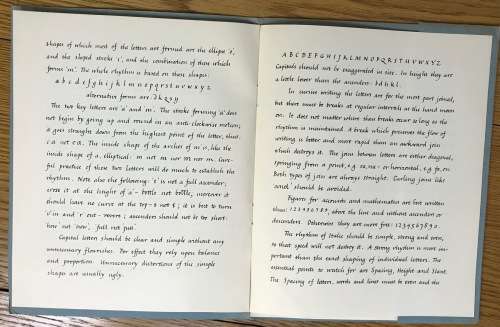 shapes of which most of the letters are formed are the ellipse 'o',
and the sloped stroke 'i', and the combination of these which
forms 'm'. The whole rhythm is based on these shapes:
a b c d e f g h i j k l m n o p q r s t u v w x y z
alternative forms are:
The two key letters are 'a' and 'm'. The stroke forming 'a' does
not begin by going up and round in an anti-clockwise motion;
it goes straight down from the highest point of the letter, thus:
a not a. The inside shape of the arches of m is, like the
inside shape of a, elliptical: m not m nor m nor m. Care-
ful practice of these two letters will do much to establish the
rhythm. Note also the following: 't' is not a full ascender;
cross it at the height of 'a' - bottle not bottle, moreover it
should have no curve at the top - t not t; it is best to turn
'r' in and 'r' out - ; ascenders should not be too short:
how not 'now', full not full.
Capital letters should be clear and simple without any
unnecessary flourishes. For effect they rely upon balance
and proportion. Unnecessary distortions of the simple
shape are usually ugly.
A B C D E F G H I J K L M N O P Q R S T U V W X Y Z
Capitals should not be exaggerated in size. In height they are
a little lower than the ascenders: bd hk l.
In cursive writing the letters are for the most part joined,
but there must be breaks at regular intervals as the hand moves
on. It does not matter where these breaks occur so long as the
rhythm is maintained. A break which preserves the flow of
writing is better and more rapid than an awkward join
which destroys it. The joins between letters are either diagonal,
springing from a point, e.g. an, ne - or horizontal, e.g. fo, on.
Both types of join are always straight. Curling joins like
and should be avoided.
Figures for accounts and mathematics are best written
thus: 1 2 3 4 5 6 7 8 9, above the line and without ascenders or
descenders. Otherwise they are more free: 1 2 3 4 5 6 7 8 9 0.
The rhythm of Italic should be simple, strong and even,
so that speed will not destroy it. A strong rhythm is more im-
portant than the exact shaping of individual letters. The
essential points to watch for are Spacing, Height and Slant.
The Spacing of letters, words and lines must be even and the